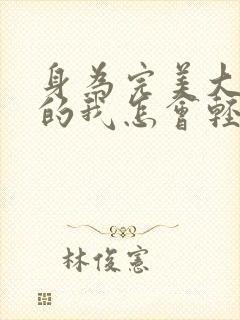 身為完美大
的我怎會輕
林俊憲